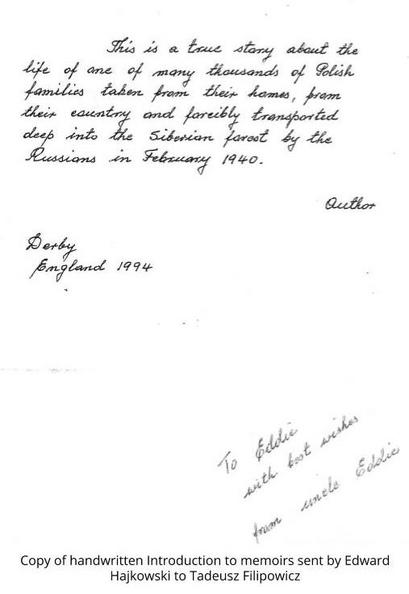 This is a true story about the
life of one of many thousands of Polish
families taken from their homes, from
their country and forcibly transported
deep into the Siberian forest by the
Russians in February 1940.
Author
Derby
England 1994
To Eddie
with best wishes
from uncle Eddie
Copy of handwritten Introduction to memoirs sent by Edward
Hajkowski to Tadeusz Filipowicz